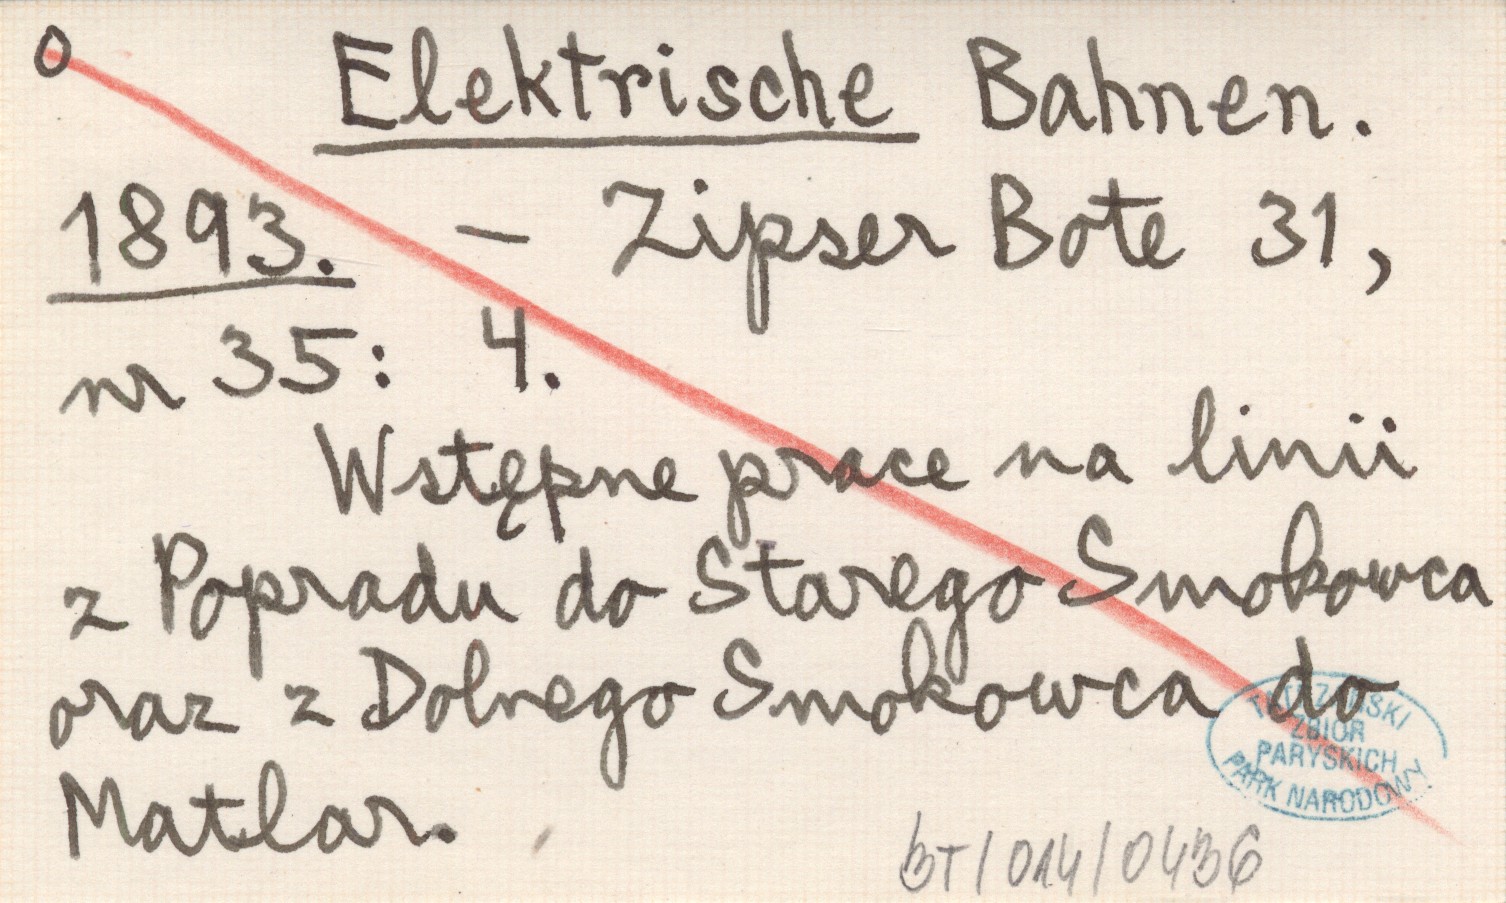 O
Elektrische Bahnen.
1893. — Zipser Bote 31,
nr 35: 4.
Wstępne prace na linii
z Popradu do Starego Smokowca
oraz z Dolnego Smokowca do
Matlar.
TATRZAŃSKI
ZBIÓR
PARYSKICH
PARK NARODOWY
BT/014/0436